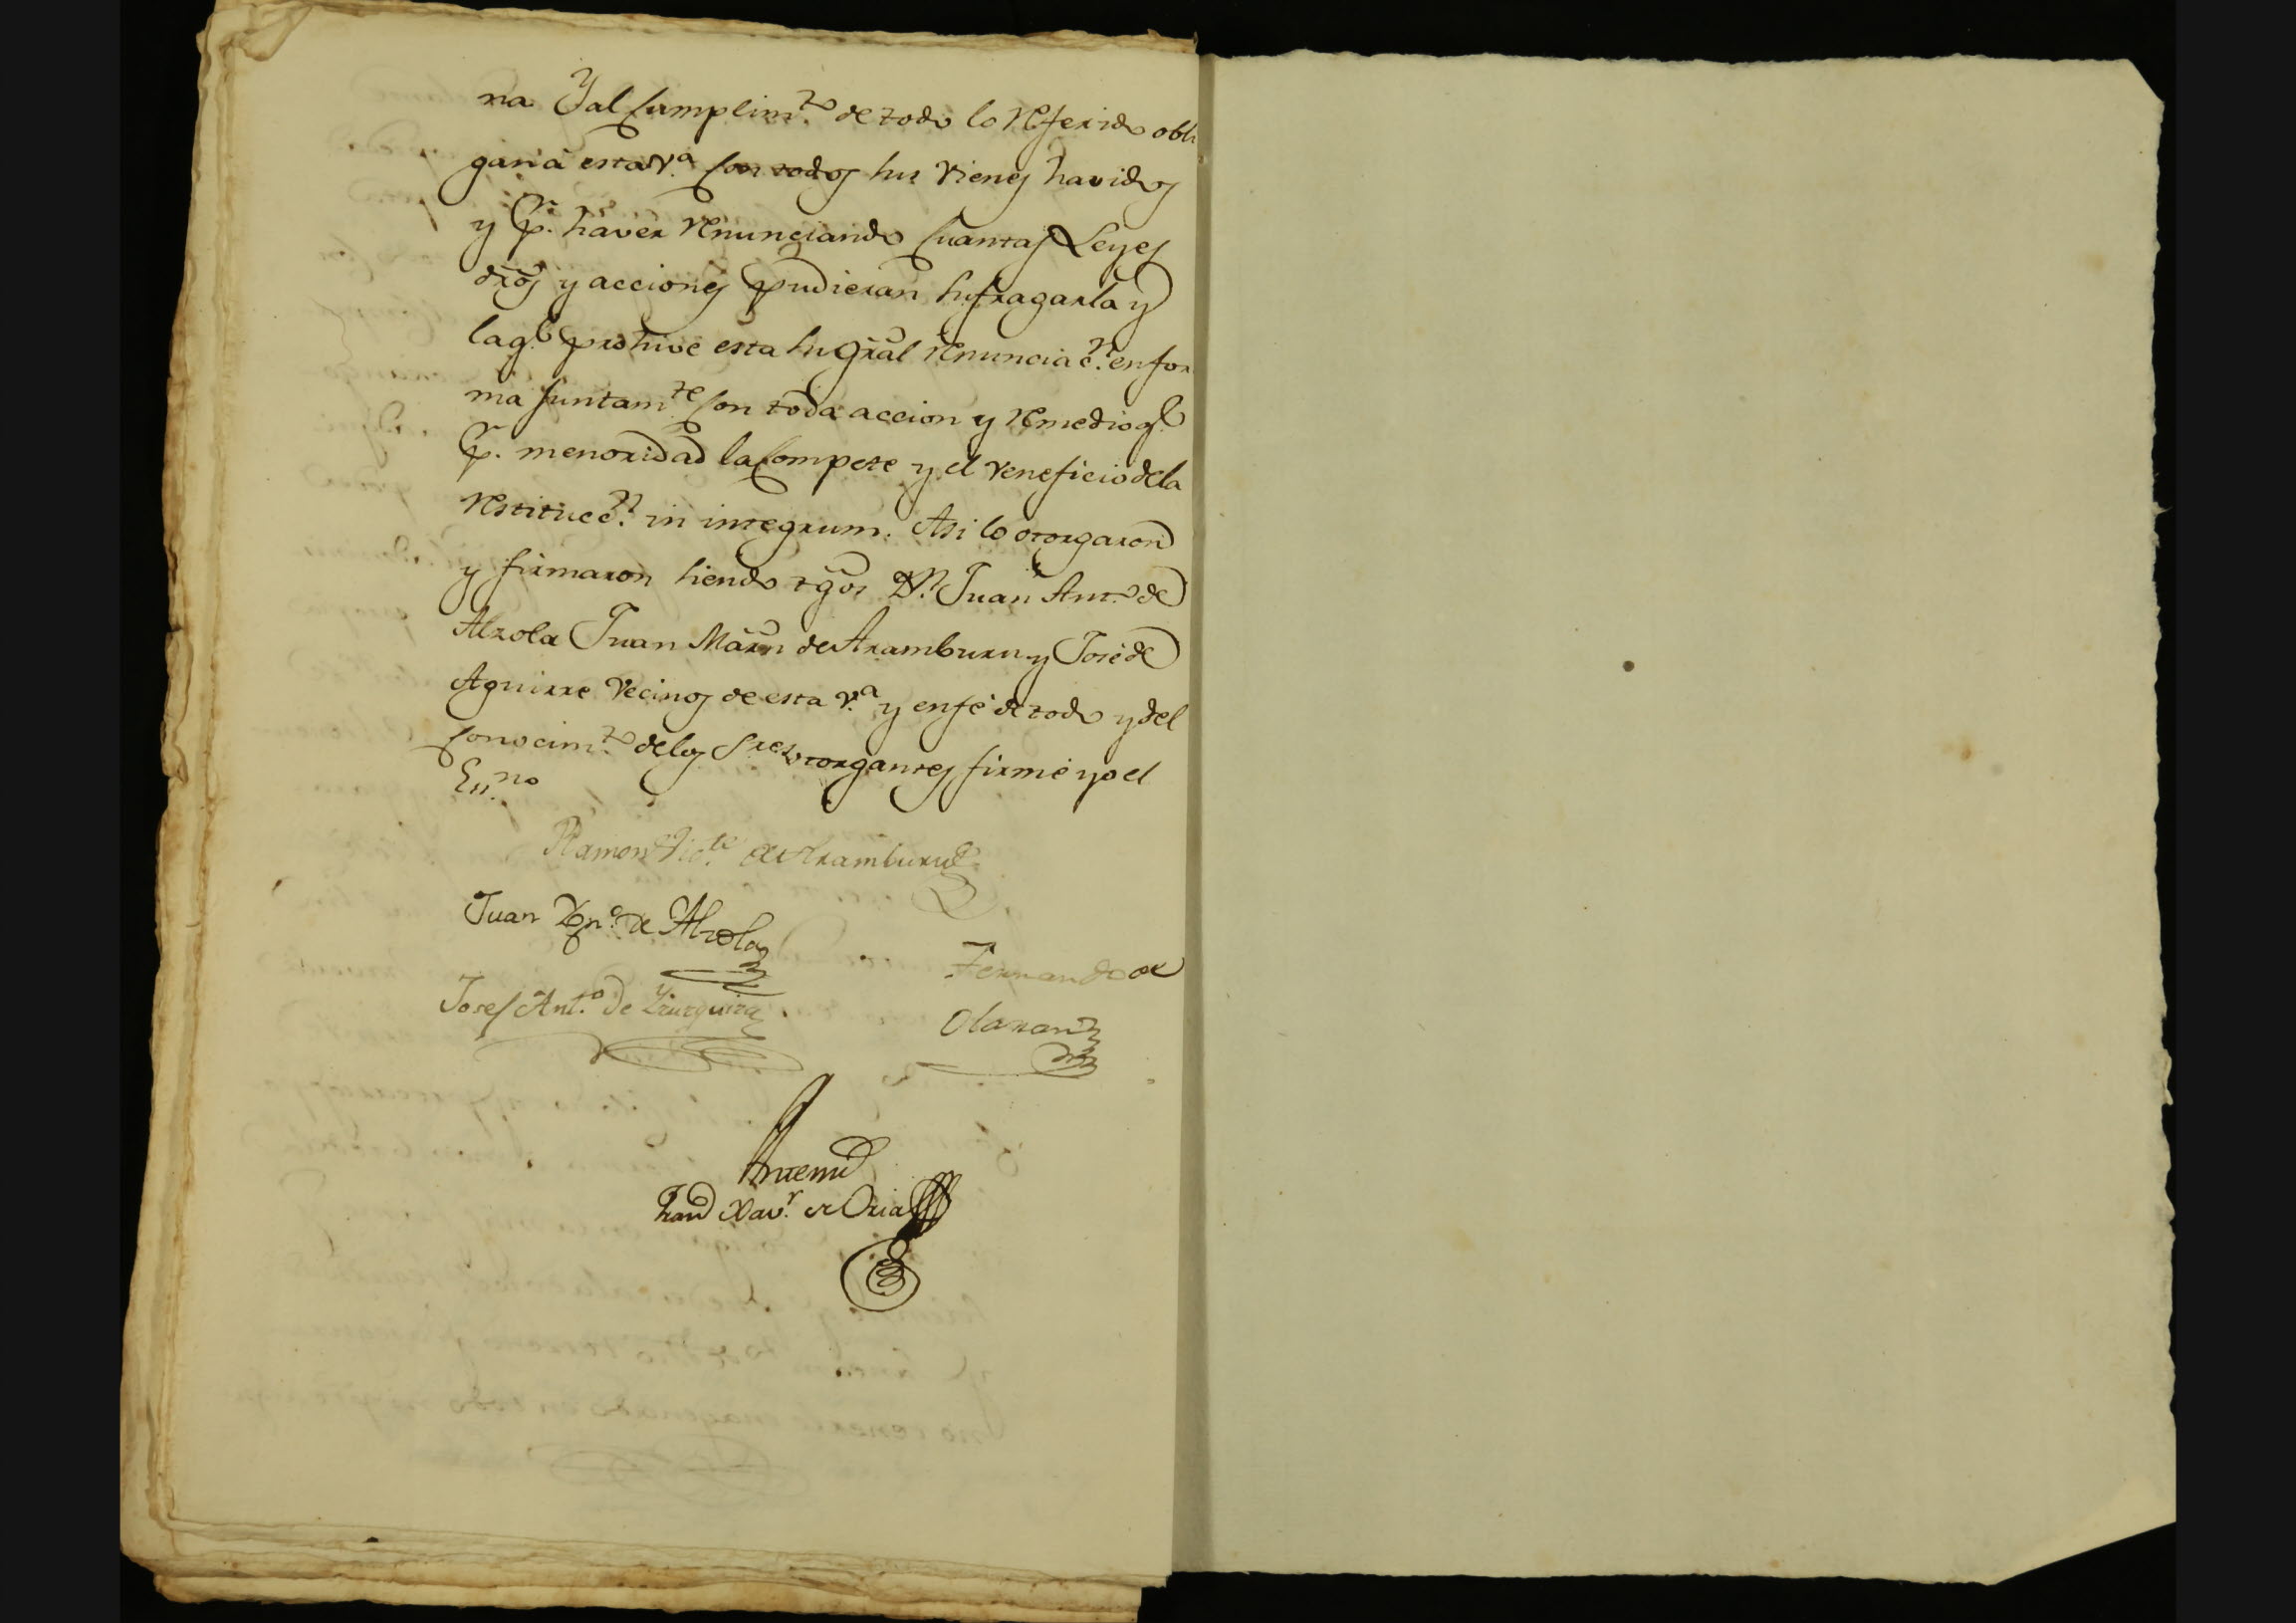 na Y al Cumplim.to de todo lo Referido obli
garia esta v.a Con todos sus vienes havidos
y p.r haver Renunciando Cuantas Leyes
dr̃os y acciones pudieran sufragarla y
la q.e prohive esta su gr̃al Renunciac.n en for
ma Juntam.te Con toda accion y Remedio q.e
p.r menoridad la Compete y el veneficio de la
Restitucc.n in integrum. Asi lo otorgaron
y firmaron siendo tg̃os D.n Juan Ant.o de
Alzola Juan Mar̃n de Aramburu y José de
Aguirre Vecinos de esta v.a y en fé de todo y del
Conocim.to de los S.res otorgantes firmé yo el
Es.no
Ramon Vic.te de Aramburu
Juan Ign.o de Alzola
Fernando de
Josef Ant.o de Yrurquiza
Olaran
Ante mi
Fran.co Xav.r de Oria